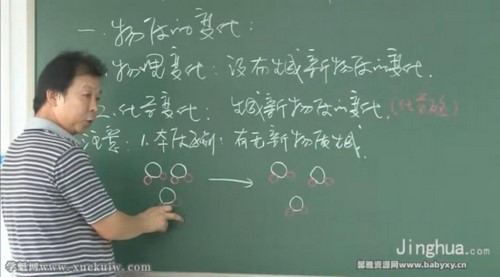 一.物质的变化:
物理变化:没有生成新物质的变化.
2.化学变化:生成新物质的变化.(化学反应)
注意:1.本质区别:有无新物质生成.
Jinghua.com
学魁网--www.xuekuiw.com
馨雅资源网www.babyxy.cn